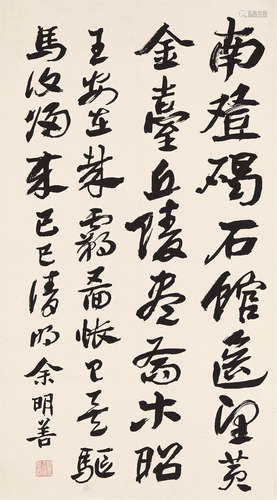 南登碣石館遙望黄
金臺丘陵盡喬木昭
王安在哉霸圖悵已矣驅
馬復歸來己巳清明余明善